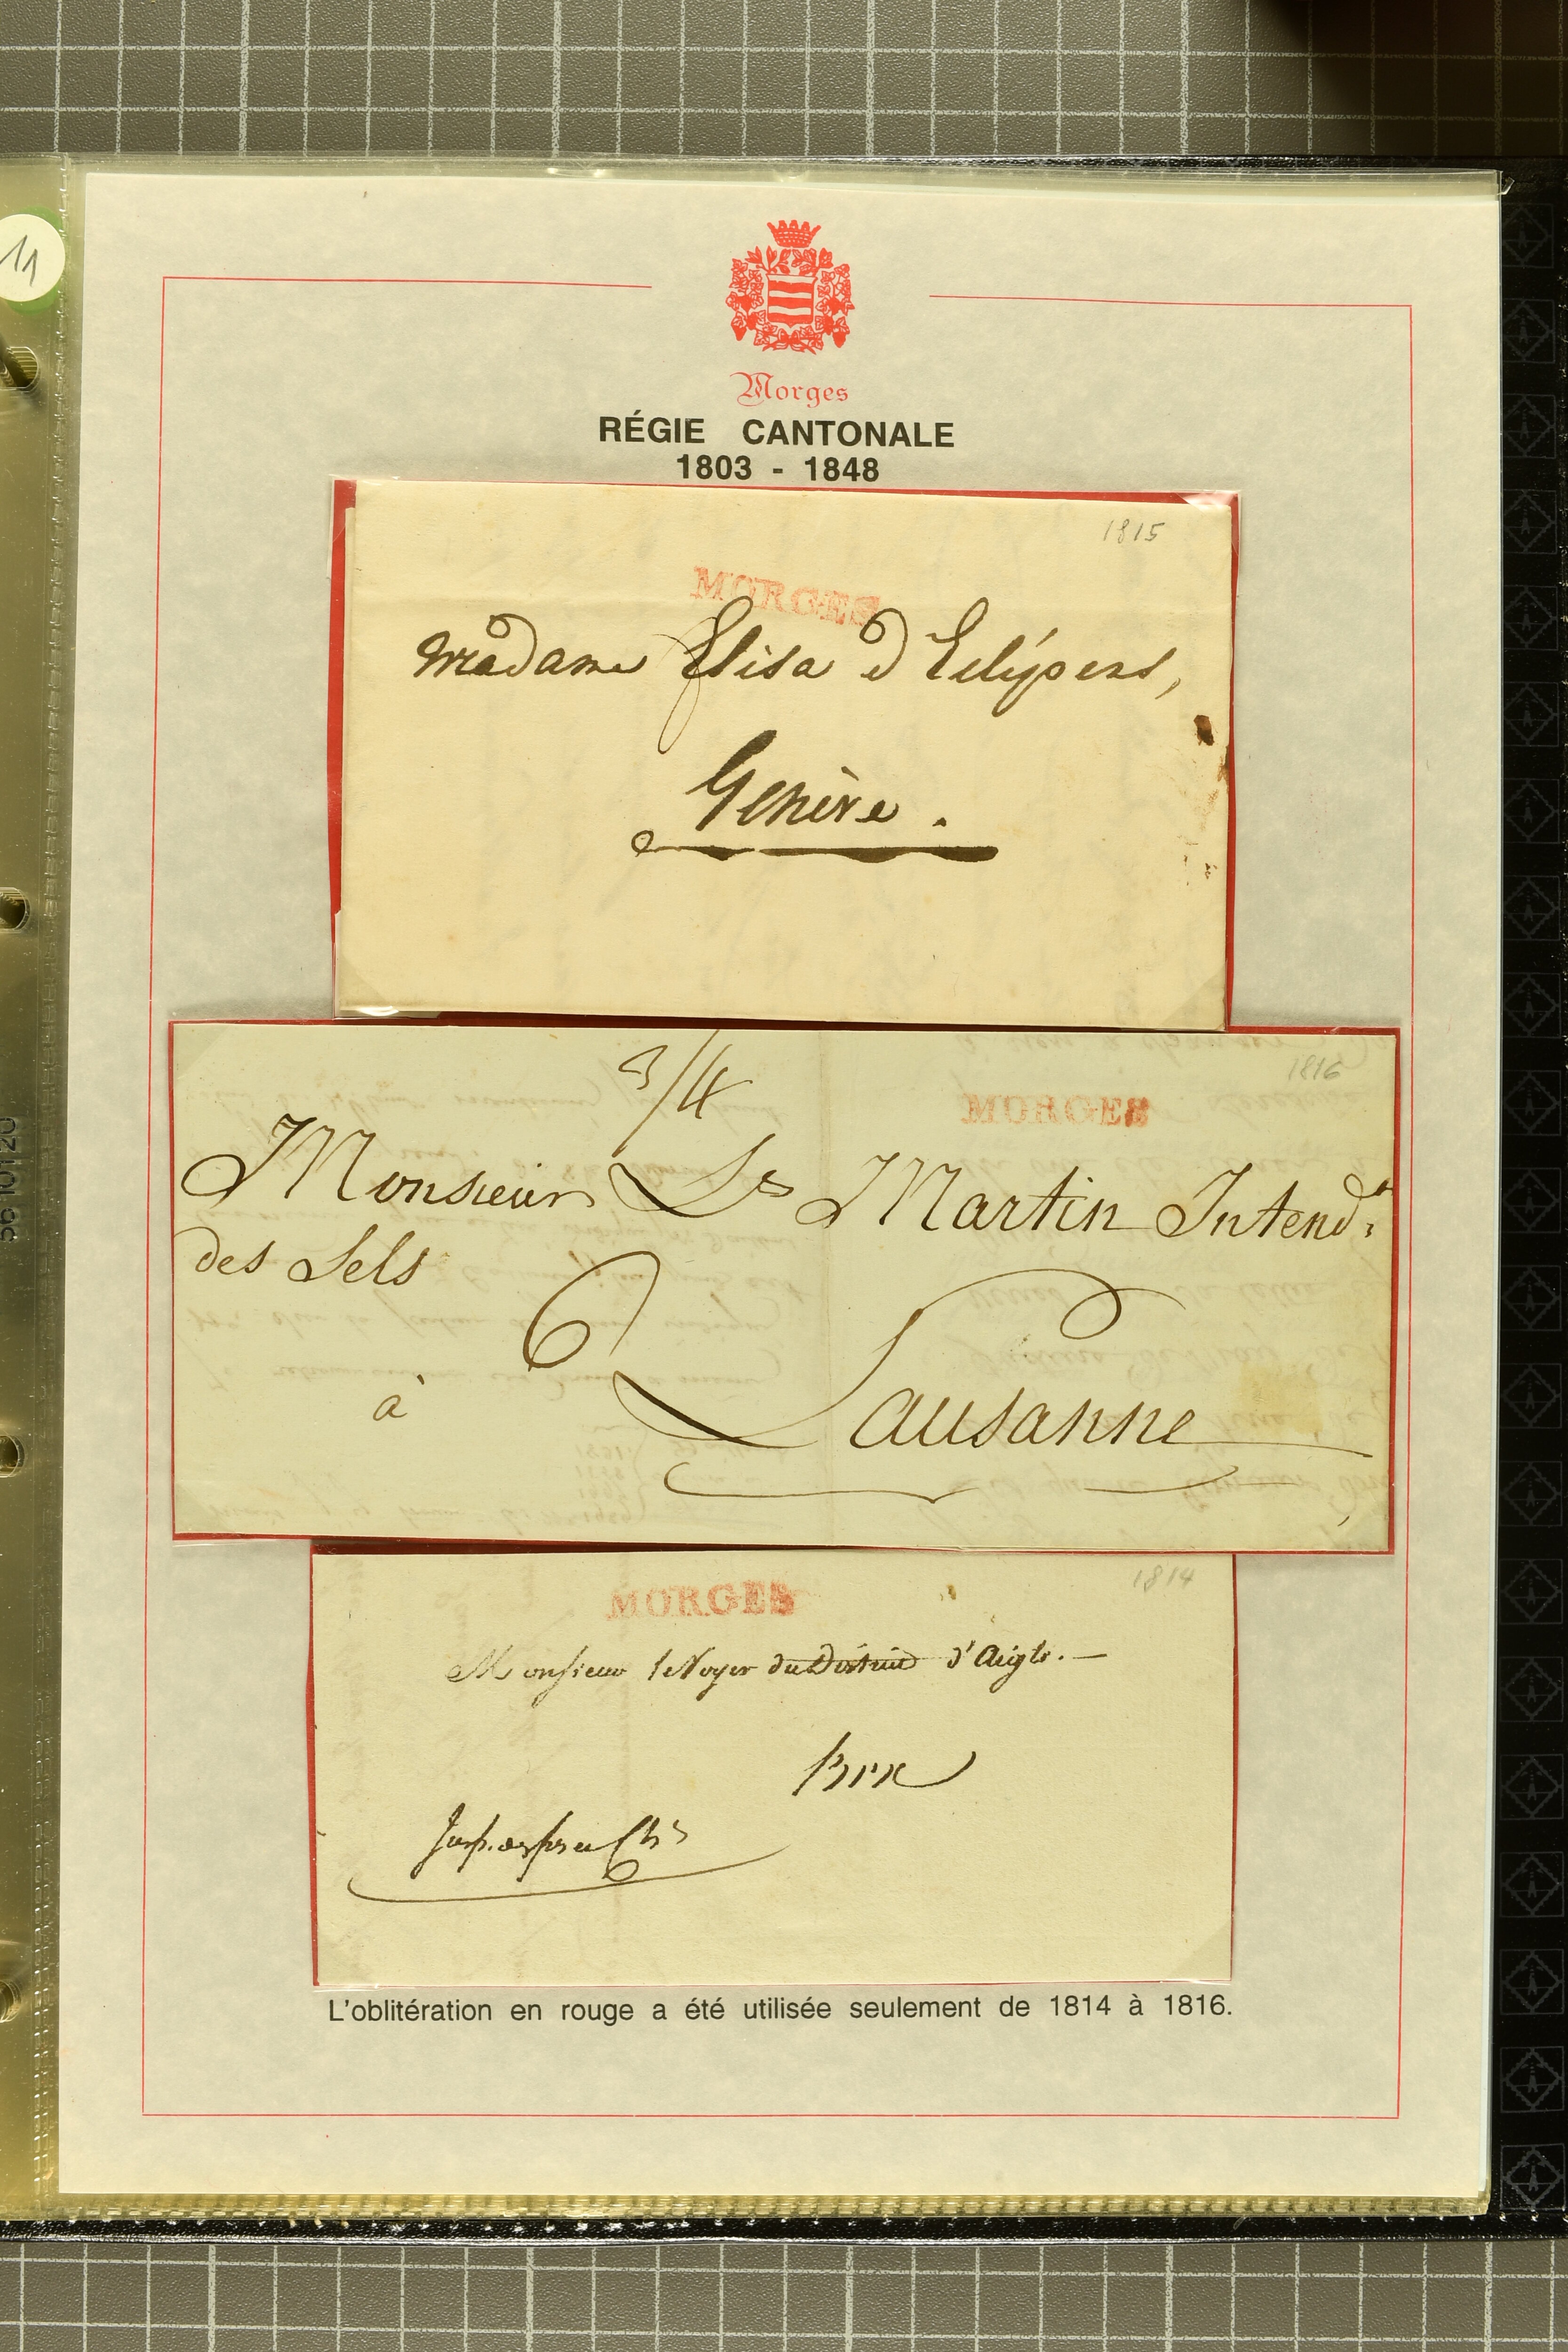 11
Morges
RÉGIE CANTONALE
1803 - 1848
1815
MORGES
Madame Elisa d'Eclépens,
Genève.
1816
3/4
MORGES
Monsieur Ls Martin Intendt
des Sels
6
à Lausanne
1814
MORGES
Monsieur du District d'Aigle.—
Bex
L'oblitération en rouge a été utilisée seulement de 1814 à 1816.